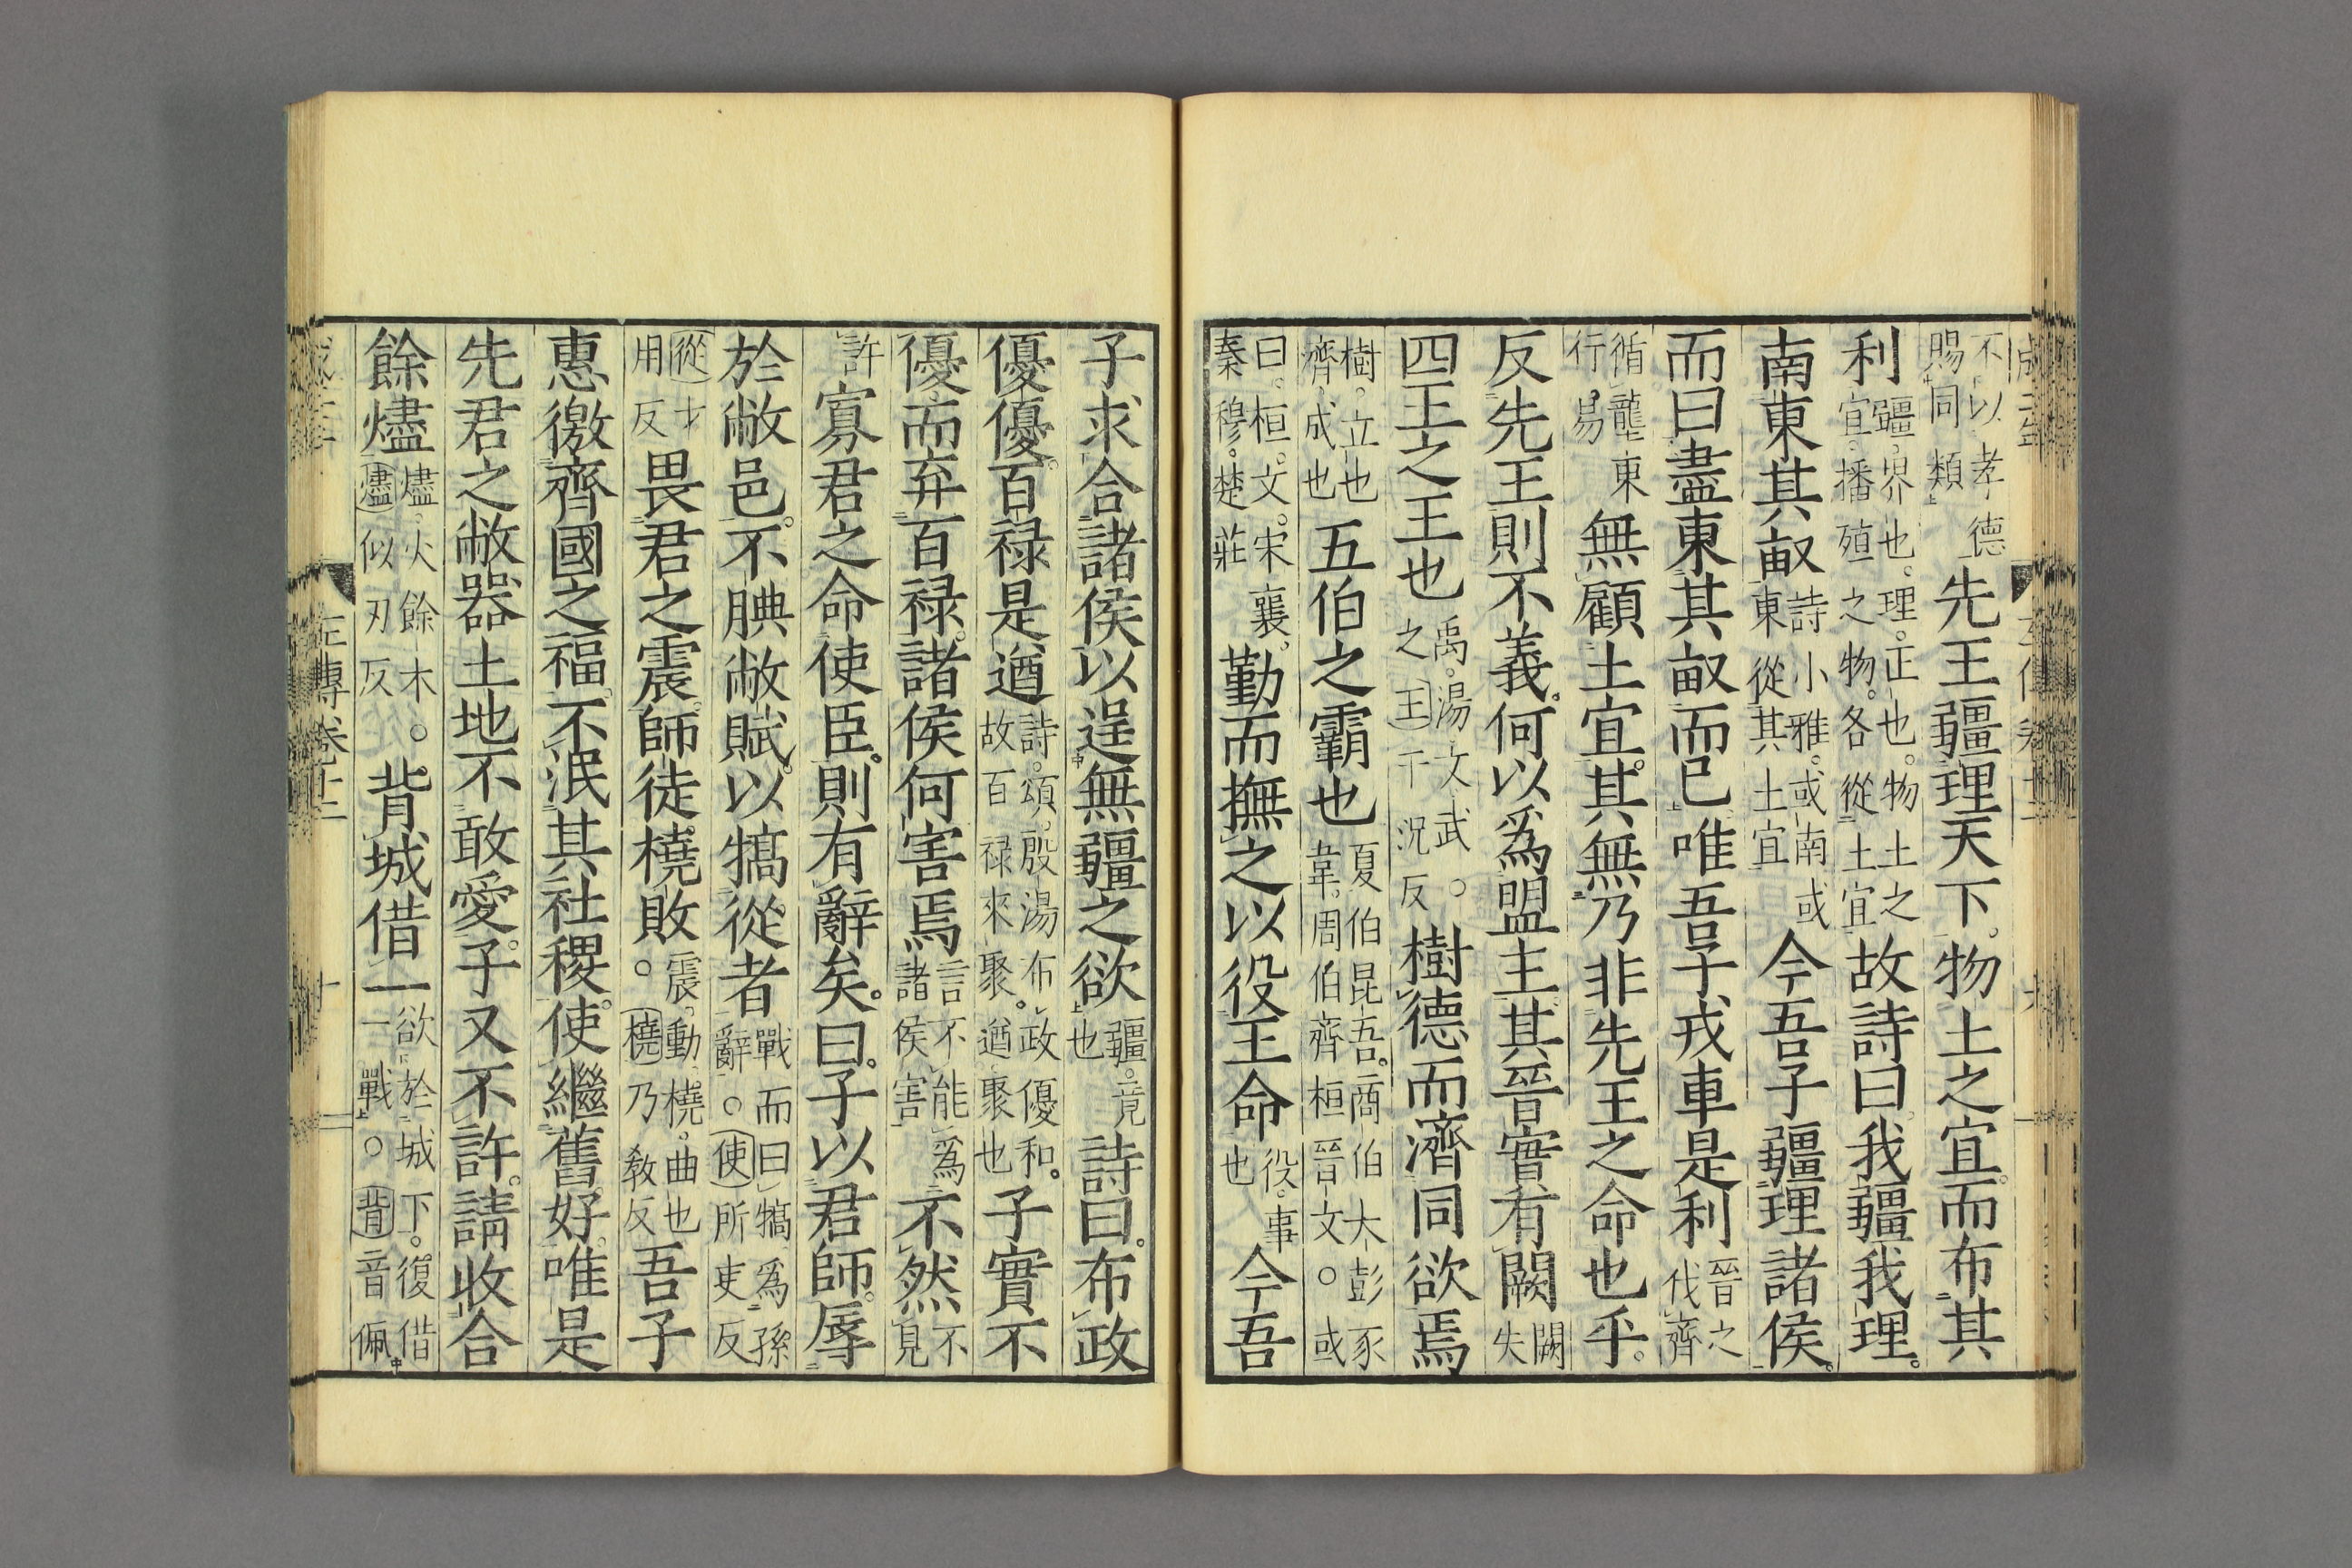 不以孝德賜同類先王疆理天下。物土之宜。而布其
利疆。界也。理。正也。物土之宜。播殖之物。各從土宜故詩曰。我疆我理。
南東其畝詩小雅。或南或東從其土宜今吾子疆理諸侯。
而曰盡東其畝而已唯吾子戎車是利晉之伐齊
循壟東行易無顧土宜。其無乃非先王之命也乎。
反先王則不義。何以爲盟主其晉實有闕闕失
四王之王也禹。湯文武。○之王于況反樹德而濟同欲焉
樹。立也濟。成也五伯之霸也夏伯昆吾。商伯大彭豕韋。周伯齊桓晉文。○或
曰。桓。文。宋襄。秦穆。楚莊勤而撫之以役王命役。事也今吾
子求合諸侯以逞無疆之欲疆。竟也詩曰。布政
優優。百祿是遒詩。頌。殷湯布政優和。故百祿來聚。遒聚也子實不
優。而弃百祿。諸侯何害焉言不能爲諸侯害不然不見
許寡君之命使臣。則有辭矣。曰。子以君師。辱
於敝邑。不腆敝賦。以犒從者戰而曰犒爲孫辭。○使所吏反
從才用反畏君之震。師徒橈敗。震。動橈。曲也橈乃教反吾子
惠徼齊國之福。不泯其社稷。使繼舊好。唯是
先君之敝器土地不敢愛。子又不許。請收合
餘燼燼。火餘木。○燼似刃反背城借一欲於城下。復借一戰。○背音佩
左傳卷十二
十